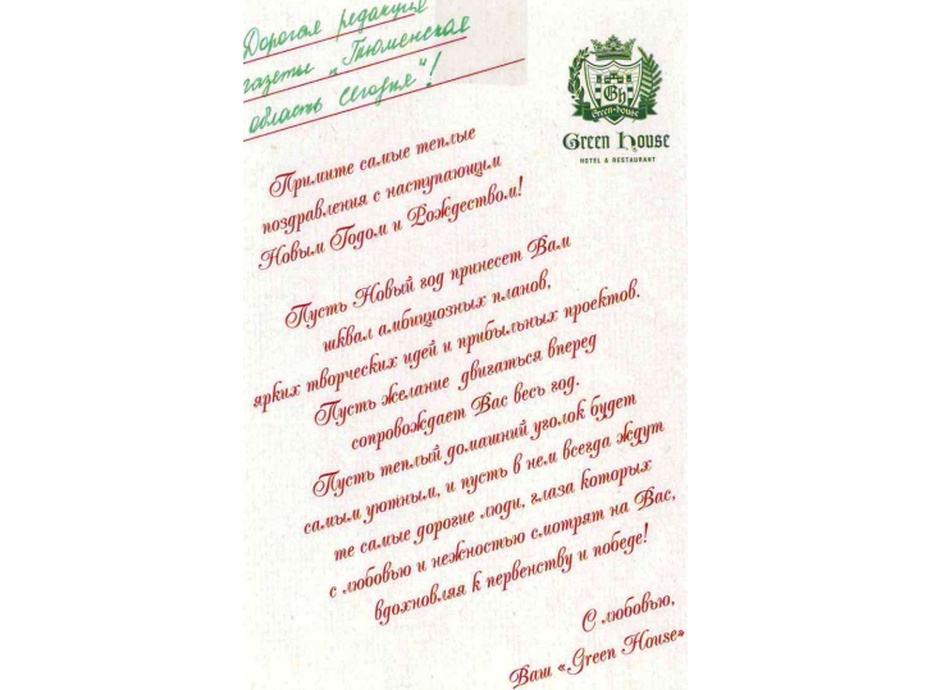 Дорогая редакция
газеты „Тюменская
область сегодня"!
Gh
Green-house
Green house
HOTEL & RESTAURANT
Примите самые теплые
поздравления с наступающим
Новым Годом и Рождеством!
Пусть Новый год принесет Вам
шквал амбициозных планов,
ярких творческих идей и прибыльных проектов.
Пусть желание двигаться вперед
сопровождает Вас весь год.
Пусть теплый домашний уголок будет
самым уютным, и пусть в нем всегда ждут
те самые дорогие люди, глаза которых
с любовью и нежностью смотрят на Вас,
вдохновляя к первенству и победе!
С любовью,
Ваш «Green House»